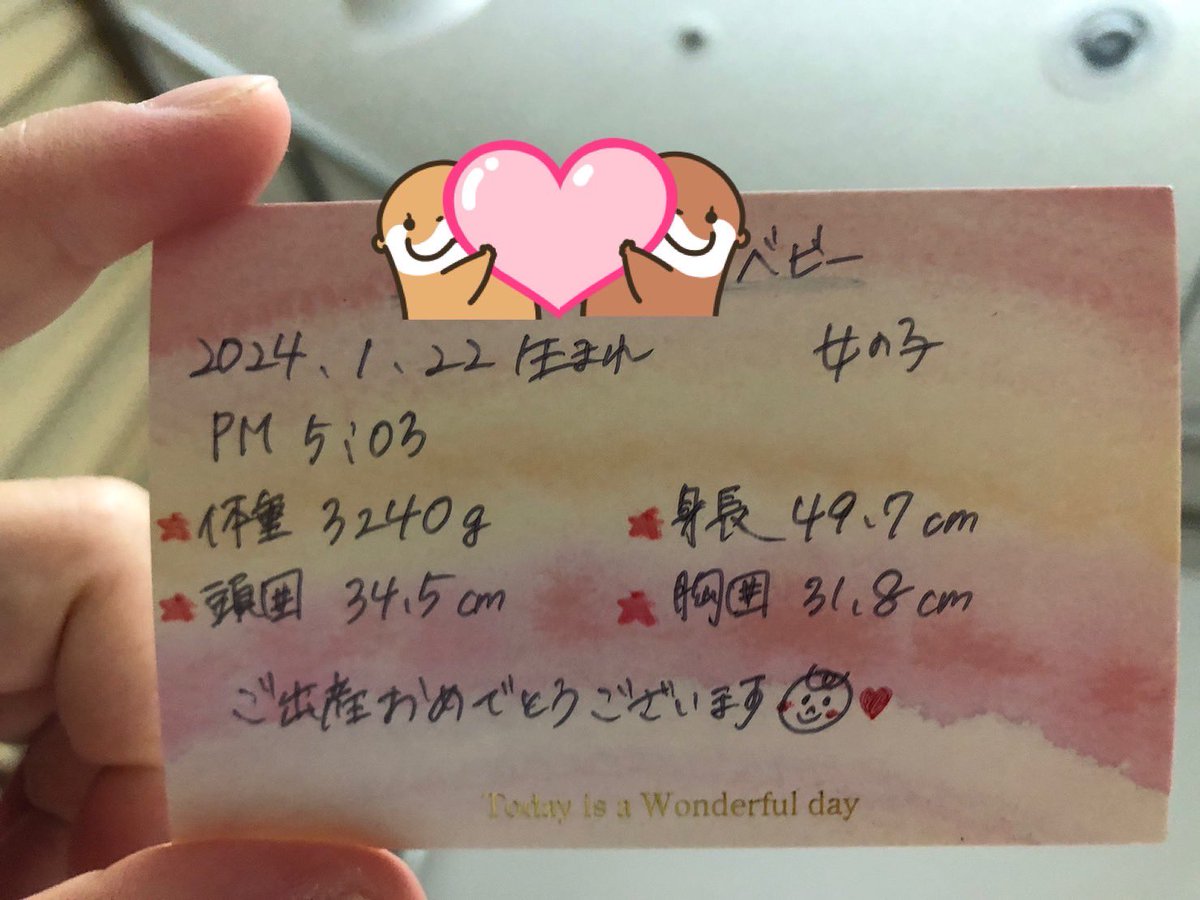 ベビー
2024、1、22 生まれ 女の子
PM 5:03
体重 3240g 身長 49.7cm
頭囲 34.5cm 胸囲 31.8cm
ご出産おめでとうございます
Today is a Wonderful day